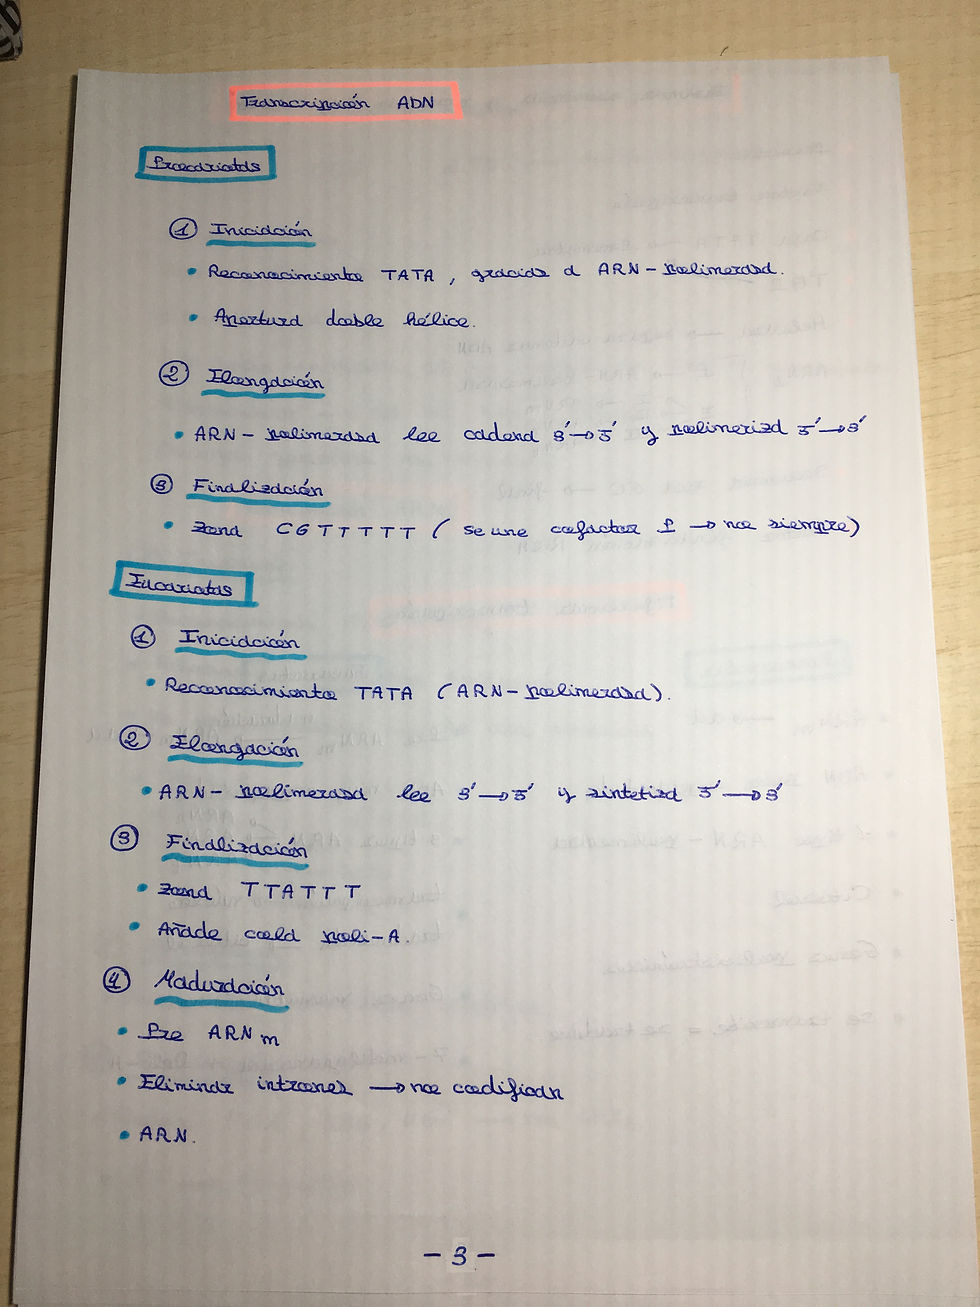 Transcripción ADN
Procariotas
① Iniciación
• Reconocimiento TATA, gracias a ARN-polimerasa.
• Apertura doble hélice.
② Elongación
• ARN-polimerasa lee cadena 3'→5' y polimeriza 5'→3'
③ Finalización
• Zona CGTTTTT (se une cofactor ρ → no siempre)
Eucariotas
① Iniciación
• Reconocimiento TATA (ARN-polimerasa).
② Elongación
• ARN-polimerasa lee 3'→5' y sintetiza 5'→3'
③ Finalización
• Zona TTATTT
• Añade cola poli-A.
④ Maduración
• Pre ARNm
• Eliminar intrones → no codifican
• ARN.
- 3 -